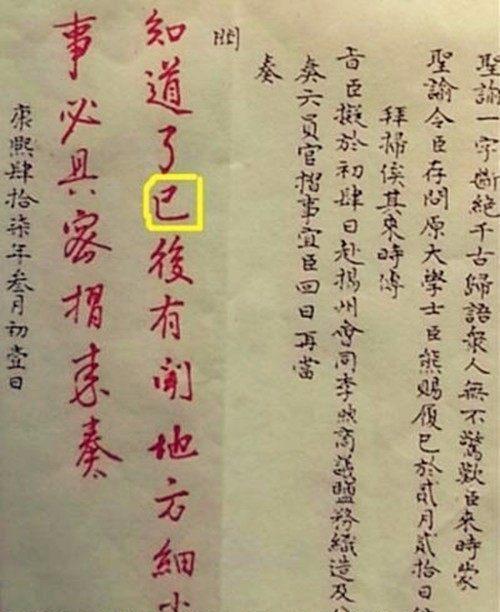 聖諭一字斷絕千古歸語衆人無不驚歎臣來時蒙
聖諭令臣存問原大學士臣熊賜履已於貳月貳拾日
拜掃俟其來時傳
旨臣擬於初肆日赴揚州會同李煦商議鹽務織造及
奏六員官摺事宜臣回日再當
奏
知道了已後有聞地方細小
事必具密摺來奏
康熙肆拾柒年叁月初壹日